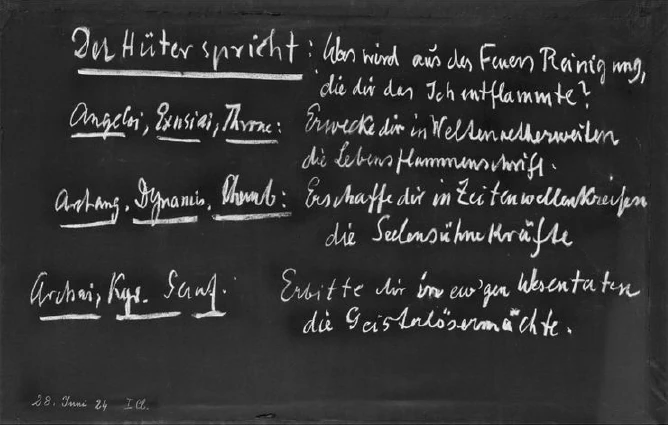 Der Hüter spricht: Was wird aus des Feuers Reinigung,
die dir das Ich entflammte?
Angeloi, Exusiai, Throne: Erwecke dir in Weltenaetherweiten
die Lebensflammenschrift.
Archang. Dynamis. Cherub: Erschaffe dir in Zeitenwellenkreisen
die Seelensühnekräfte
Archai, Kyr. Seraf. Erbitte dir in ew'gen Wesentaten
die Geisterlösermächte.
28. Juni 24